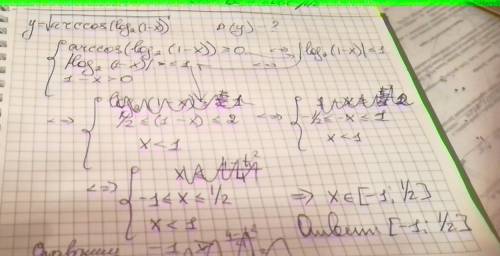 y=√arccos(log₂(1-x)) D(y) - ?
{ arccos(log₂(1-x)) ≥ 0 <=> { |log₂(1-x)| ≤ 1
|log₂(1-x)| ≤ 1 <=>
1 - x > 0
<=> { 1/2 ≤ (1-x) ≤ 2 <=> { -1/2 ≤ -x ≤ 1
x < 1 x < 1
<=> { -1 ≤ x ≤ 1/2 => x ∈ [-1; 1/2]
x < 1 Ответ [-1; 1/2]